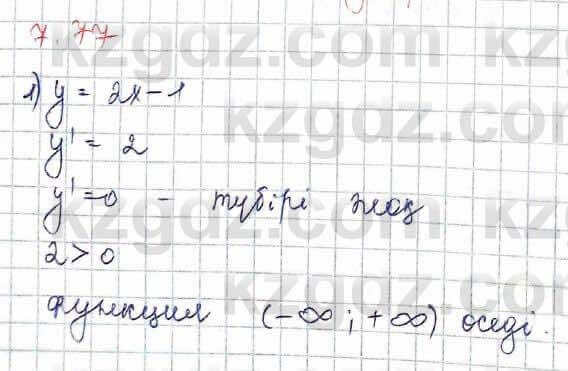 7.77
1) y = 2x - 1
y' = 2
y' = 0 - түбірі жоқ
2 > 0
Функция (-∞; +∞) өседі.
kzgdz.com
kzgdz.com
kzgdz.com
kzgdz.com
kzgdz.com